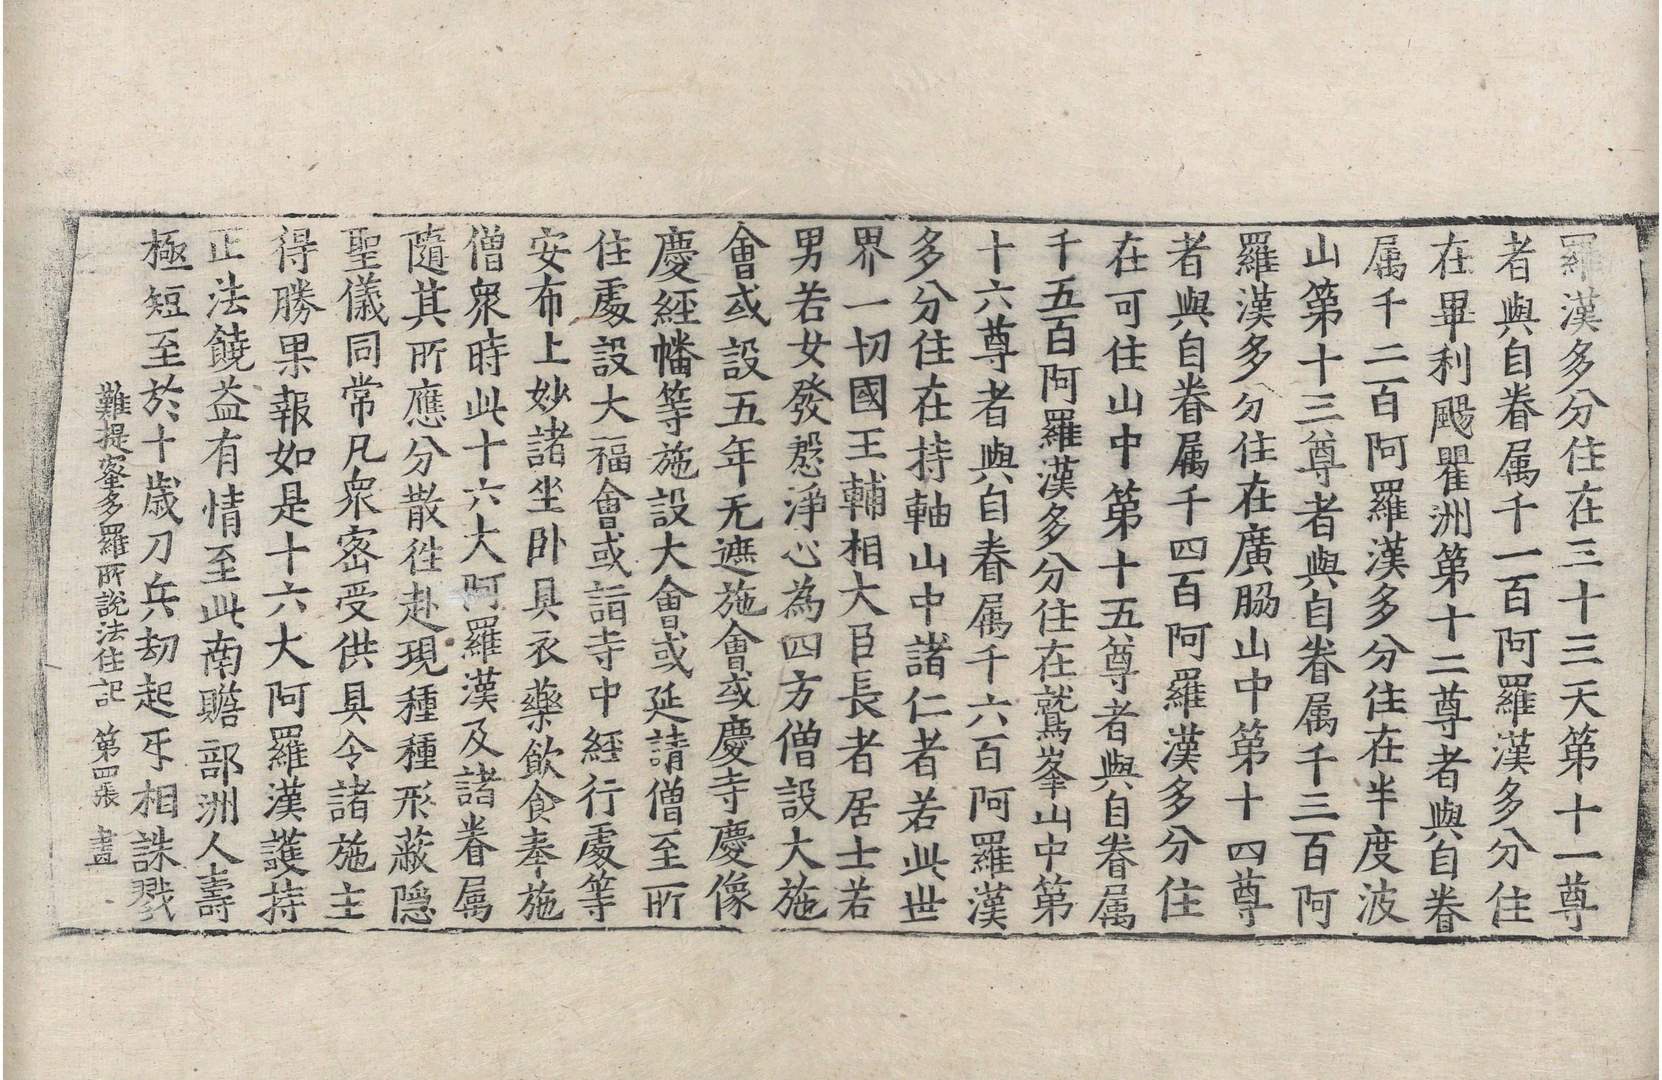 羅漢多分住在三十三天第十一尊
者與自眷属千一百阿羅漢多分住
在畢利颺瞿洲第十二尊者與自眷
属千二百阿羅漢多分住在半度波
山第十三尊者與自眷属千三百阿
羅漢多分住在廣脇山中第十四尊
者與自眷属千四百阿羅漢多分住
在可住山中第十五尊者與自眷属
千五百阿羅漢多分住在鷲峯山中第
十六尊者與自眷属千六百阿羅漢
多分住在持軸山中諸仁者若此世
界一切國王輔相大臣長者居士若
男若女發慇淨心為四方僧設大施
會或設五年无遮施會或慶寺慶像
慶經幡等施設大會或延請僧至所
住處設大福會或詣寺中經行處等
安布上妙諸坐卧具衣藥飲食奉施
僧衆時此十六大阿羅漢及諸眷属
隨其所應分散往赴現種種形蔽隱
聖儀同常凡衆密受供具令諸施主
得勝果報如是十六大阿羅漢護持
正法饒益有情至此南贍部洲人壽
極短至於十歲刀兵劫起乎相誅戮
難提蜜多羅所說法住記 第四張 晝